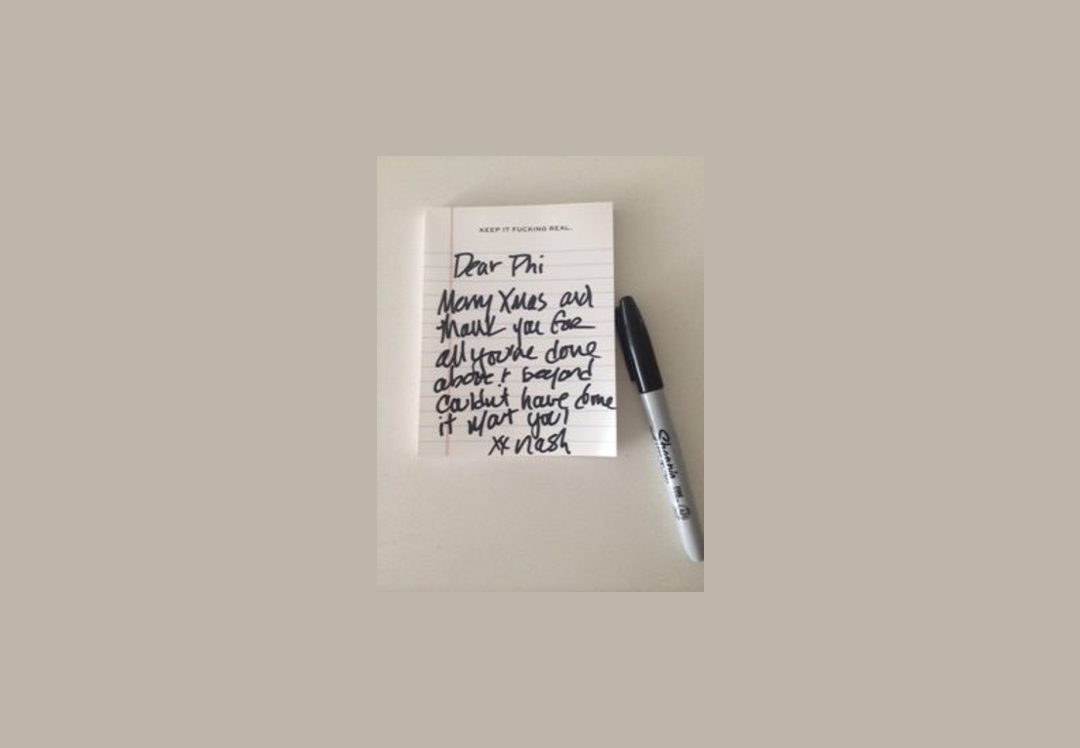 KEEP IT FUCKING REAL.
Dear Phi
Merry Xmas and
thank you for
all you've done
above & beyond
Couldn't have done
it w/out you!
xx nash
Sharpie